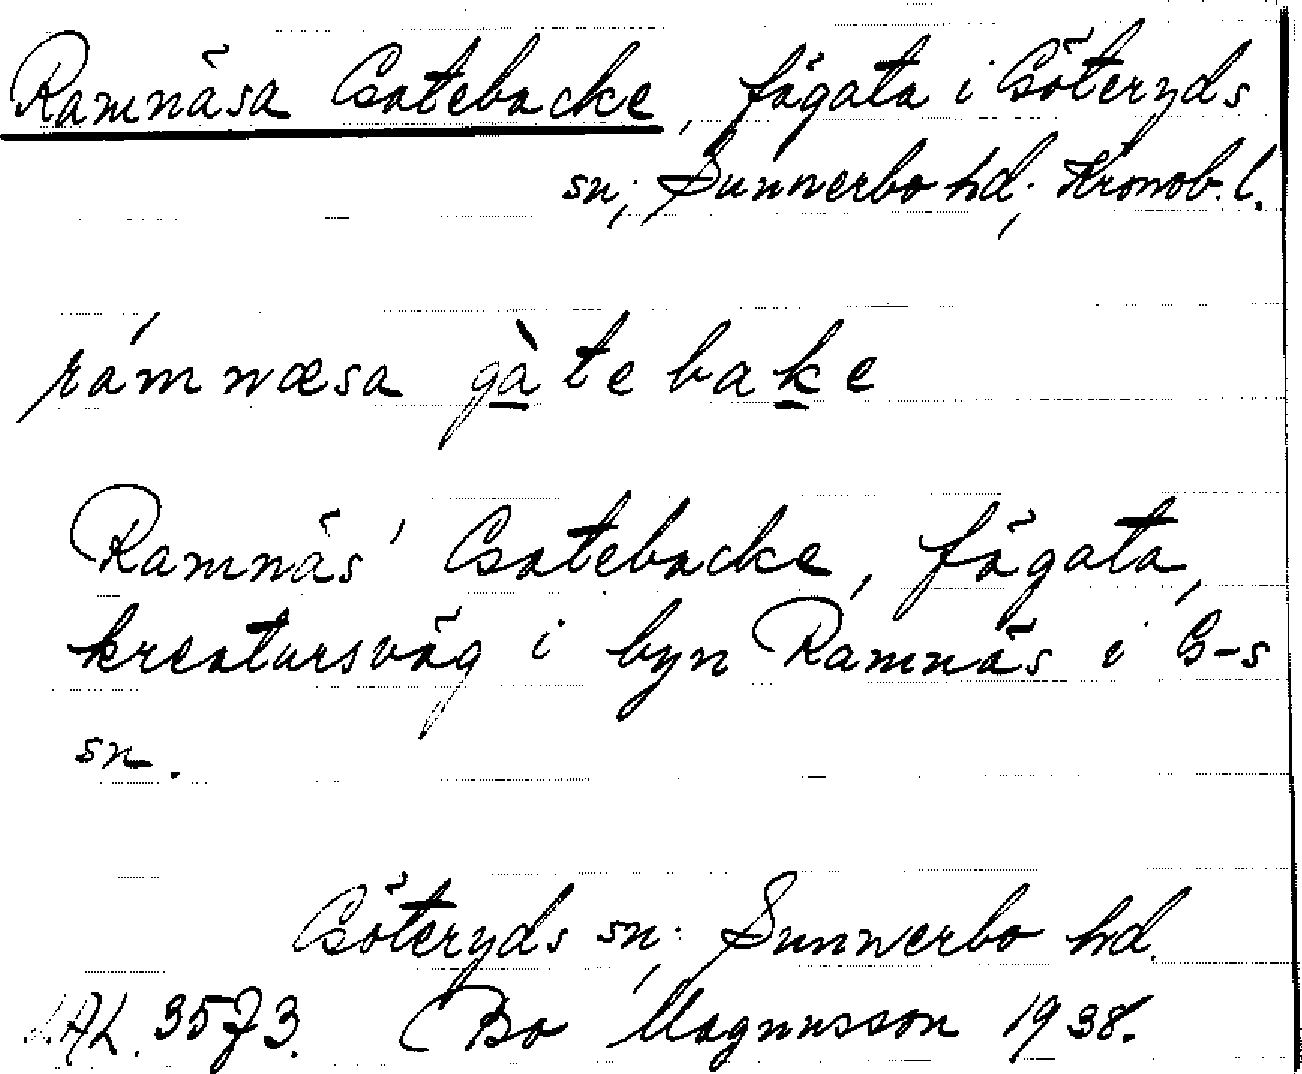 Ramnäsa Gatebacke, fägata i Göteryds
sn; Sunnerbo hd; Kronob. l.
rámnæsa gàtebake
Ramnäs' Gatebacke, fägata,
kreatursväg i byn Ramnäs i G-s
sn.
Göteryds sn; Sunnerbo hd.
LAL. 3573. Bo Magnusson 1938.